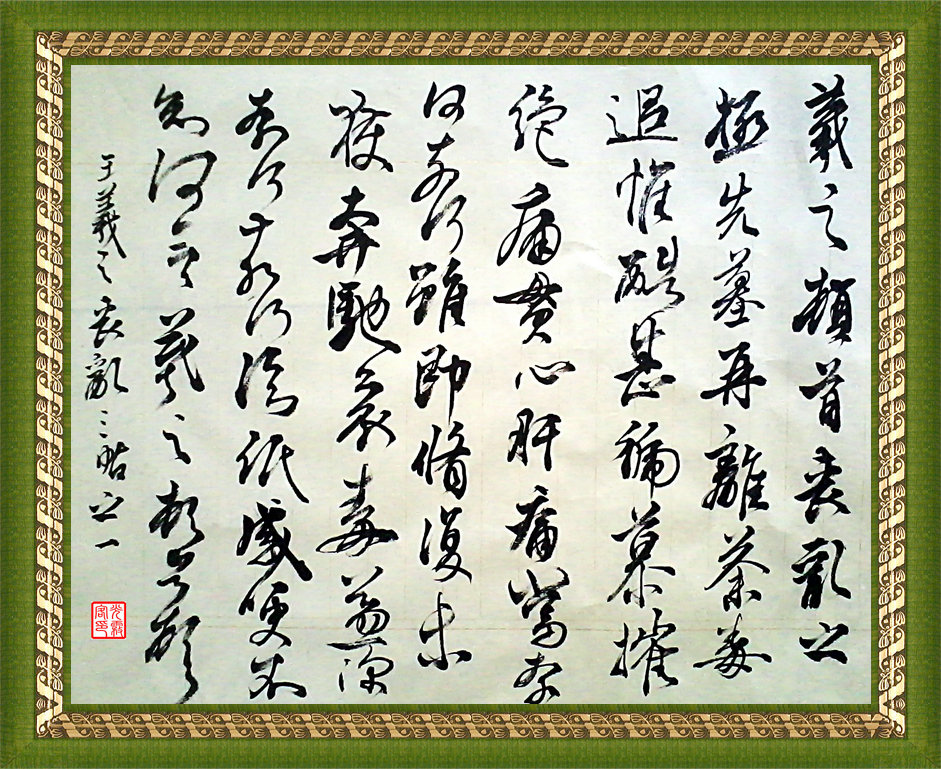 羲之頓首喪亂之
極先墓再離荼毒
追惟酷甚號慕摧
絕痛貫心肝痛當奈
何奈何雖即脩復未
獲奔馳哀毒益深
奈何奈何臨紙感哽不
知何言羲之頓首頓首
王羲之喪亂三帖之一